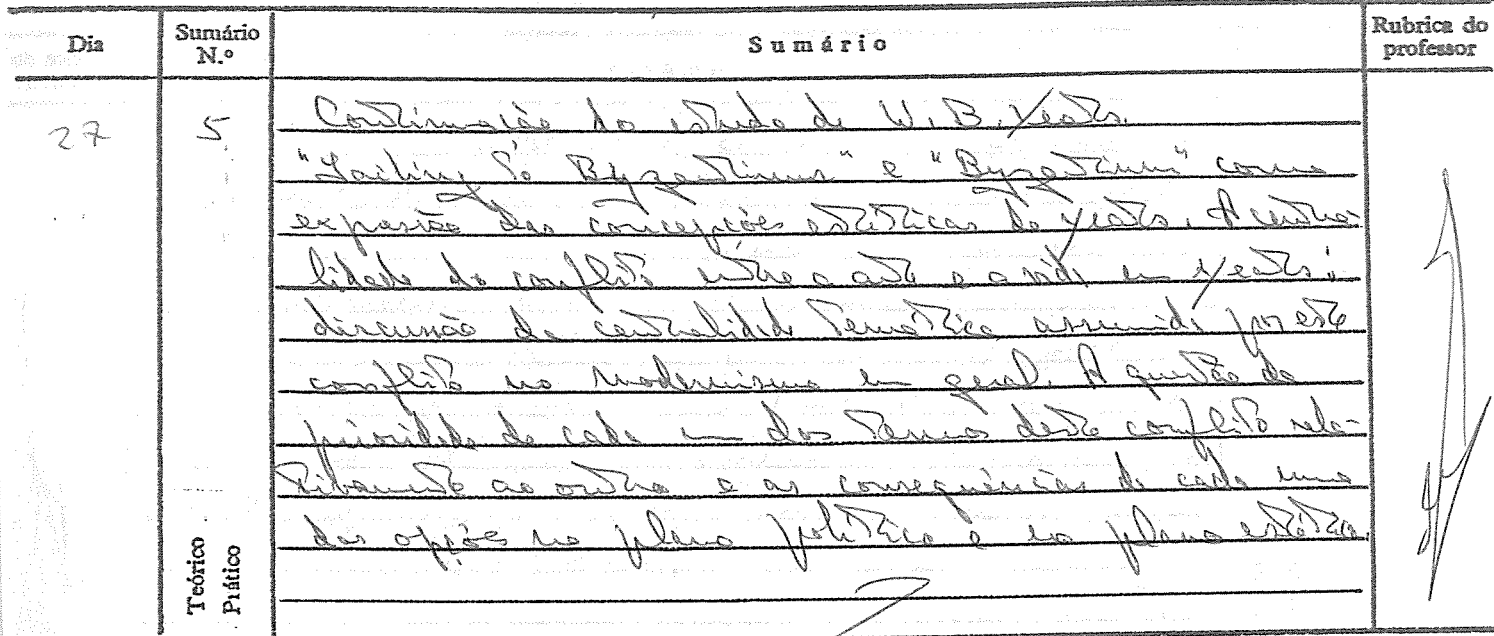 Dia
Sumário N.º
Sumário
Rubrica do professor
27
5
Continuação do estudo de W. B. Yeats.
"Sailing to Byzantium" e "Byzantium" como
expressão das concepções estéticas de Yeats. A centra-
lidade do conflito entre a arte e a vida em Yeats:
discussão da centralidade temática assumida por este
conflito no modernismo em geral. A questão da
prioridade de cada um dos termos deste conflito rela-
tivamente ao outro e as consequências de cada uma
das opções no plano político e no plano estético.
Teórico
Prático